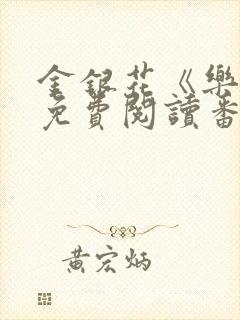 金銀花《樂
免費閱讀番
黃宏炳